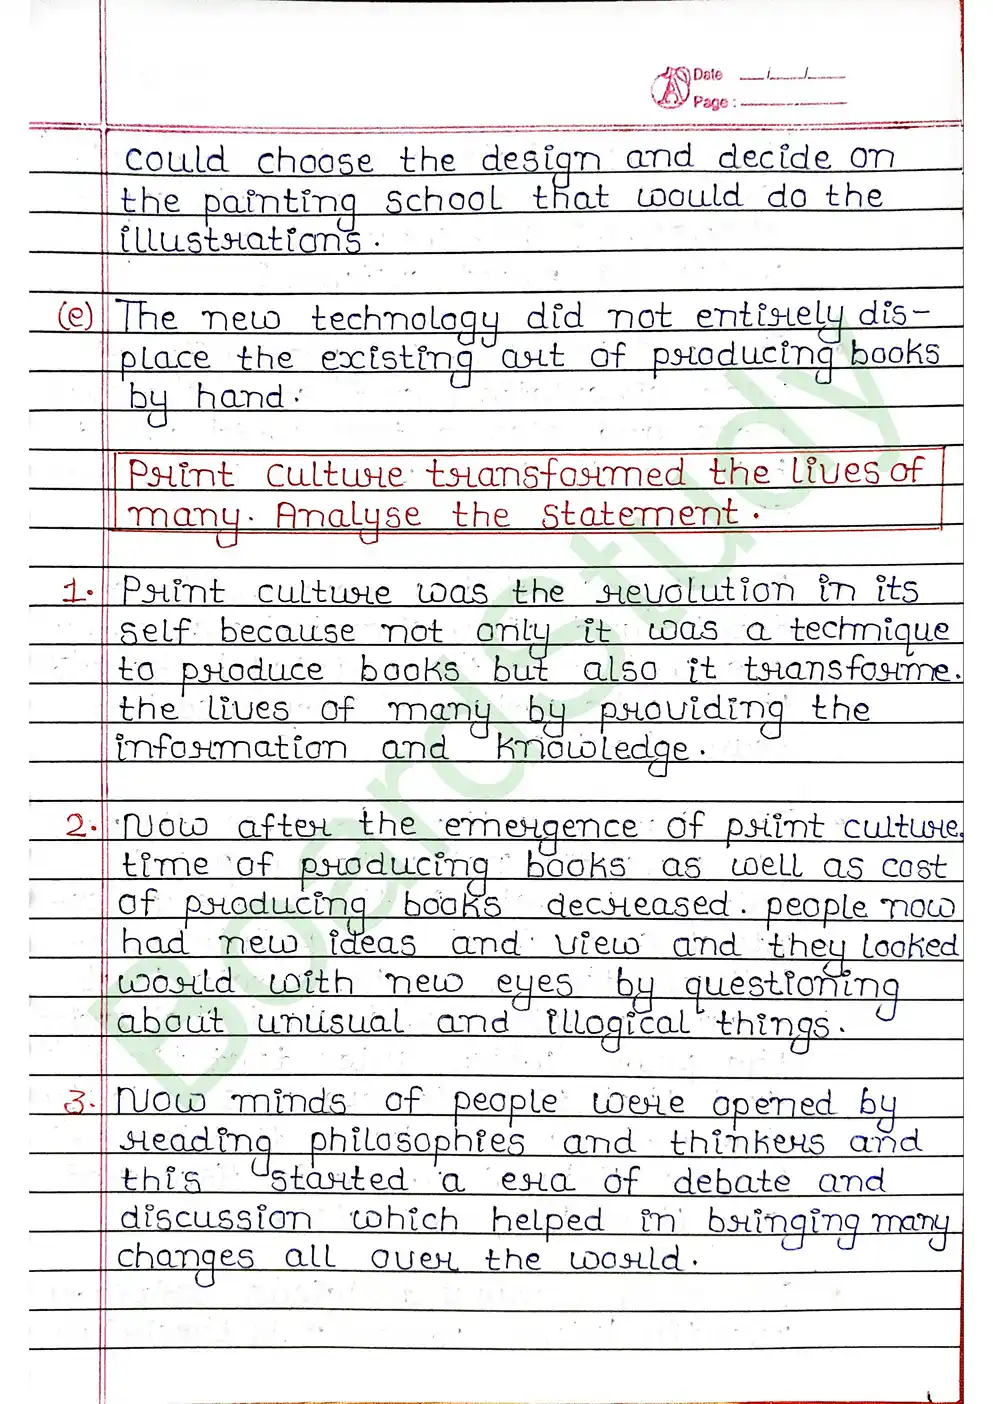 Date __/__/__
Page : ______
could choose the design and decide on
the painting school that would do the
illustrations.
(e) The new technology did not entirely dis-
place the existing art of producing books
by hand.
Print culture transformed the lives of
many. Analyse the statement.
1. Print culture was the revolution in its
self because not only it was a technique
to produce books but also it transforme.
the lives of many by providing the
information and knowledge.
2. Now after the emergence of print culture.
time of producing books as well as cost
of producing books decreased. people now
had new ideas and view and they looked
world with new eyes by questioning
about unusual and illogical things.
3. Now minds of people were opened by
reading philosophies and thinkers and
this started a era of debate and
discussion which helped in bringing many
changes all over the world.
BoardStudy